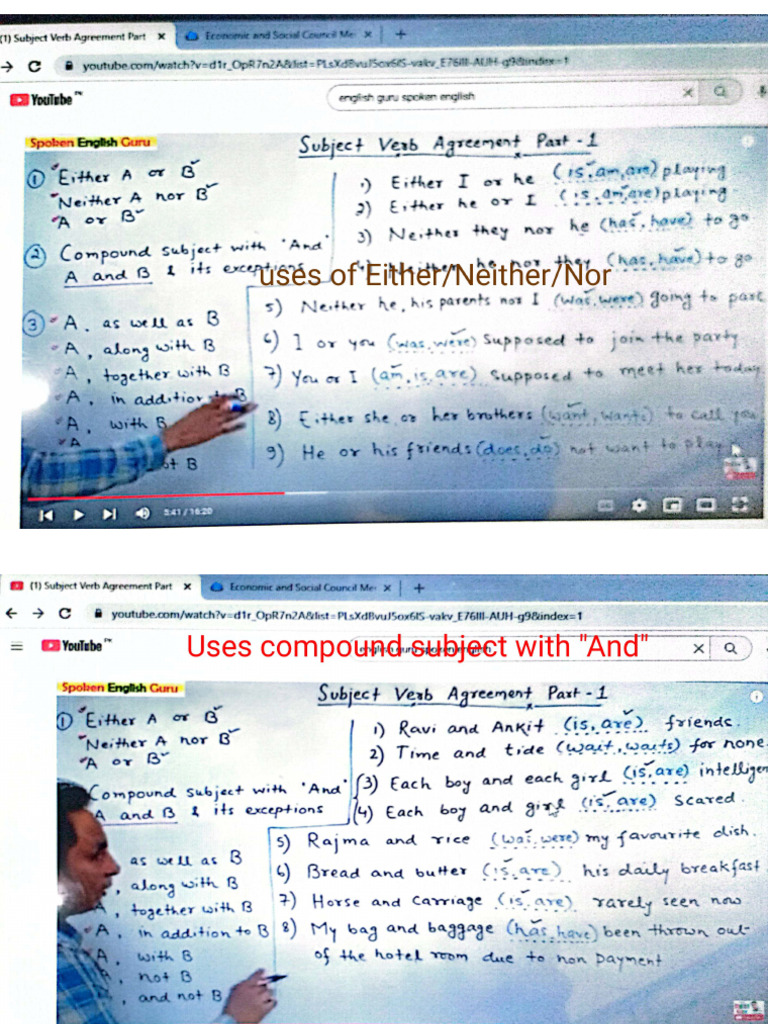 (1) Subject Verb Agreement Part
Economic and Social Council Me
youtube.com/watch?v=d1r_OpR7n2A&list=PLsXdBvuJ5ox6IS-vakv_E76III-AUH-g9&index=1
YouTube
english guru spoken english
Spoken English Guru
Subject Verb Agreement Part - 1
① Either A or B
Neither A nor B
A or B
② Compound subject with 'And'
A and B & its exceptions
③ A, as well as B
A, along with B
A, together with B
A, in addition to B
A, with B
A
not B
1) Either I or he (is, am, are) playing
2) Either he or I (is, am, are) playing
3) Neither they nor he (has, have) to go
4) Neither he nor they (has, have) to go
uses of Either/Neither/Nor
5) Neither he, his parents nor I (was, were) going to part
6) I or you (was, were) supposed to join the party
7) You or I (am, is, are) supposed to meet her today
8) Either she or her brothers (want, wants) to call you
9) He or his friends (does, do) not want to play
5:41 / 16:20
(1) Subject Verb Agreement Part
Economic and Social Council Me
youtube.com/watch?v=d1r_OpR7n2A&list=PLsXdBvuJ5ox6IS-vakv_E76III-AUH-g9&index=1
YouTube
english guru spoken english
Uses compound subject with "And"
Spoken English Guru
Subject Verb Agreement Part - 1
① Either A or B
Neither A nor B
A or B
Compound subject with 'And'
A and B & its exceptions
as well as B
, along with B
A, together with B
A, in addition to B
A, with B
A, not B
, and not B
1) Ravi and Ankit (is, are) friends.
2) Time and tide (wait, waits) for none.
(3) Each boy and each girl (is, are) intelligen
(4) Each boy and girl (is, are) scared.
5) Rajma and rice (was, were) my favourite dish.
6) Bread and butter (is, are) his daily breakfast
7) Horse and carriage (is, are) rarely seen now
8) My bag and baggage (has, have) been thrown out
of the hotel room due to non payment